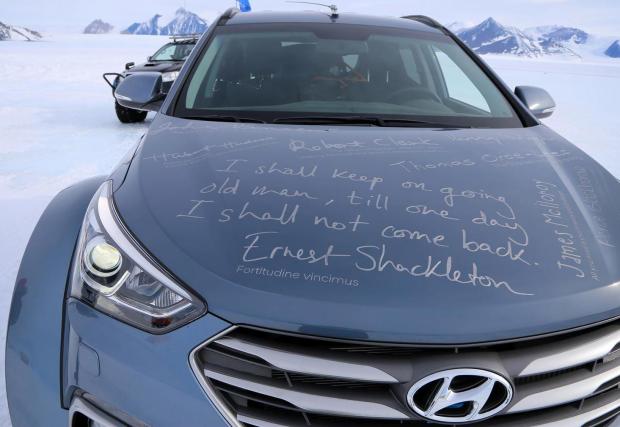 Robert Clark
Thomas Crean
I shall keep on going
old man, till one day
I shall not come back.
Ernest Shackleton
Fortitudine vincimus
James McIlroy